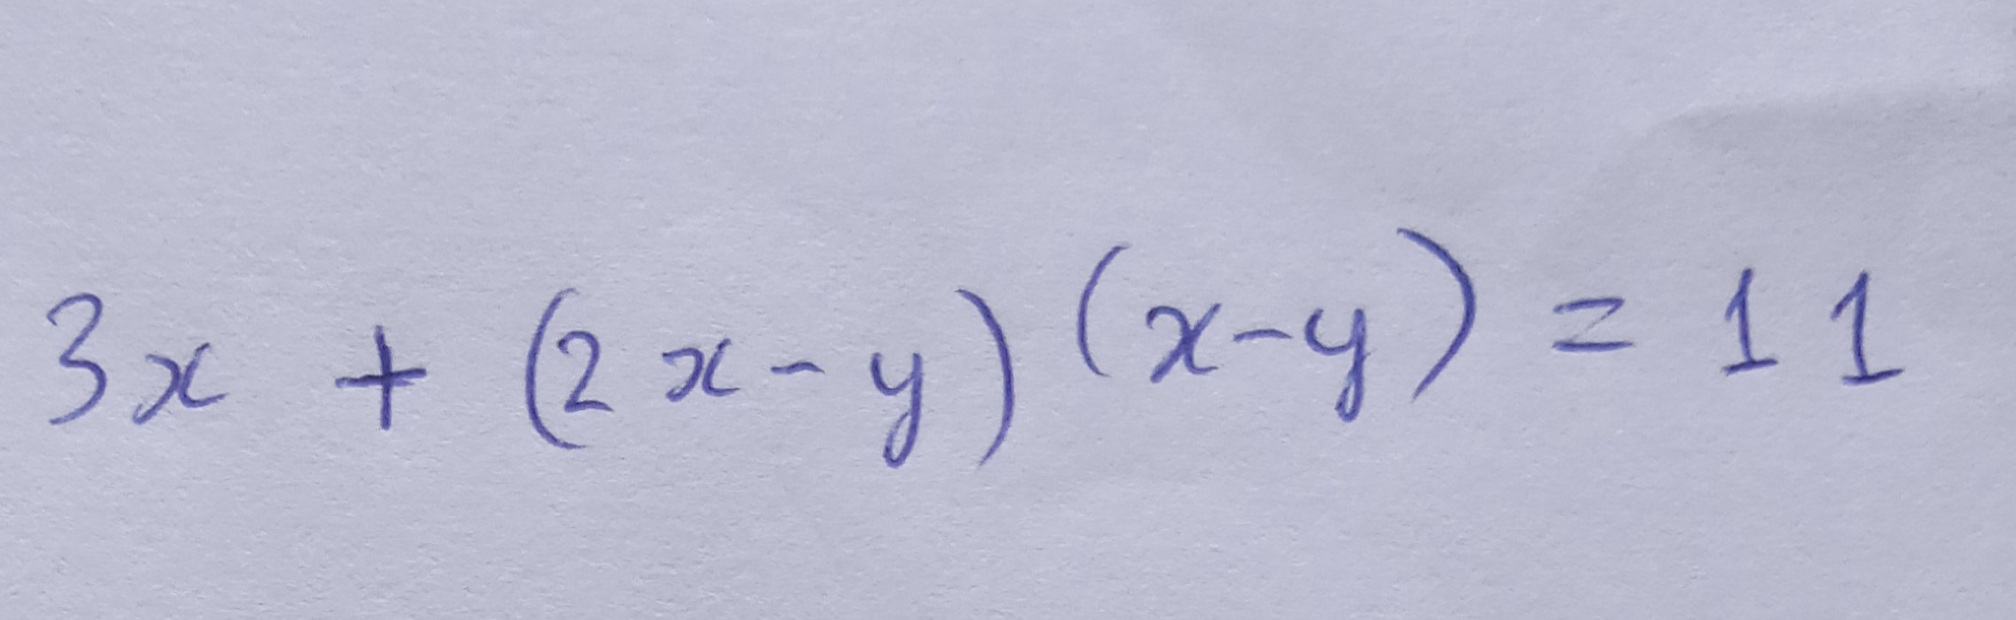 3x + (2x-y)(x-y) = 11